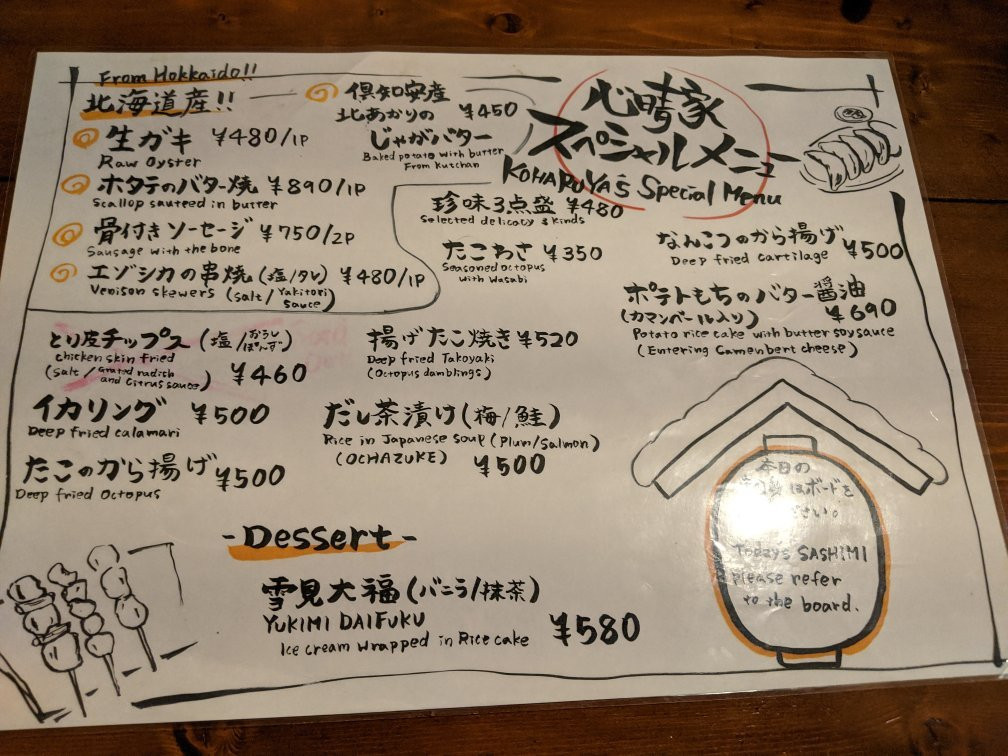 From Hokkaido!!
北海道産!!
生ガキ ¥480/1P
Raw Oyster
ホタテのバター焼 ¥890/1P
Scallop sauteed in butter
骨付きソーセージ ¥750/2P
Sausage with the bone
エゾシカの串焼(塩/タレ) ¥480/1P
Venison skewers (Salt/Yakitori sauce)
倶知安産
北あかりの ¥450
じゃがバター
Baked potato with butter
From Kutchan
心晴家
スペシャルメニュー
KOHARUYA's Special Menu
珍味3点盛 ¥480
Selected delicacy 3 kinds
たこわさ ¥350
Seasoned octopus
with Wasabi
なんこつのから揚げ ¥500
Deep fried cartilage
ポテトもちのバター醤油
(カマンベール入り) ¥690
Potato rice cake with butter soy sauce
(Entering Camenbert cheese)
とり皮チップス (塩/おろしぽんず)
chicken skin fried
(Salt/Grated radish and Citrus sauce) ¥460
揚げたこ焼き ¥520
Deep fried Takoyaki
(Octopus damblings)
イカリング ¥500
Deep fried calamari
だし茶漬け(梅/鮭)
Rice in Japanese soup (Plum/Salmon)
(OCHAZUKE) ¥500
たこのから揚げ ¥500
Deep fried Octopus
-Dessert-
雪見大福(バニラ/抹茶)
YUKIMI DAIFUKU
Ice cream wrapped in Rice cake ¥580
今日の
はボードを
ださい。
Todays SASHIMI
please refer
to the board.